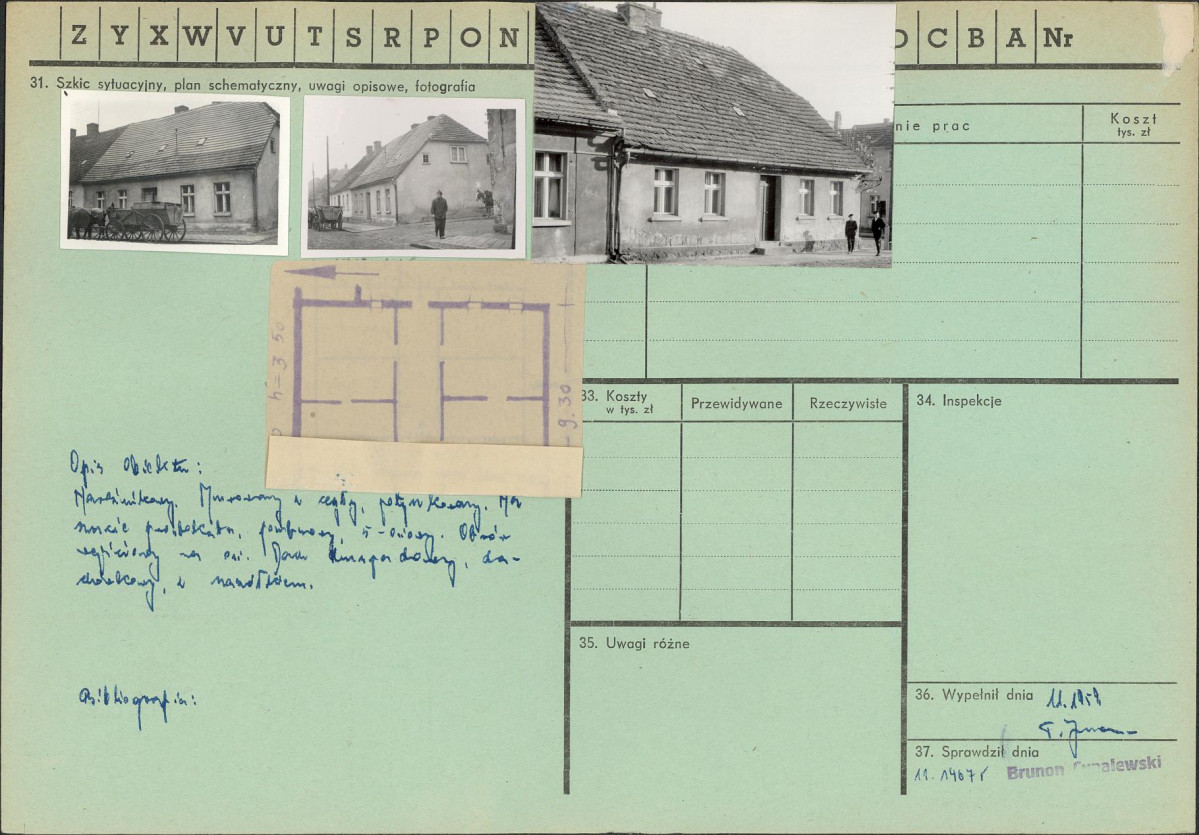 Z Y X W V U T S R P O N
C B A Nr
31. Szkic sytuacyjny, plan schematyczny, uwagi opisowe, fotografia
nie prac
Koszt
tys. zł
h = 3 50
9.30
33. Koszty
w tys. zł
Przewidywane
Rzeczywiste
34. Inspekcje
Opis obiektu:
Narożnikowy. Murowany z cegły, potynkowany. Na
rzucie prostokąta, parterowy, 5-osiowy. Otwór
wejściowy na osi. Dach dwuspadowy, da-
chówkowy, z naczółkiem.
35. Uwagi różne
Bibliografia:
36. Wypełnił dnia 11.1959
37. Sprawdził dnia
Brunon